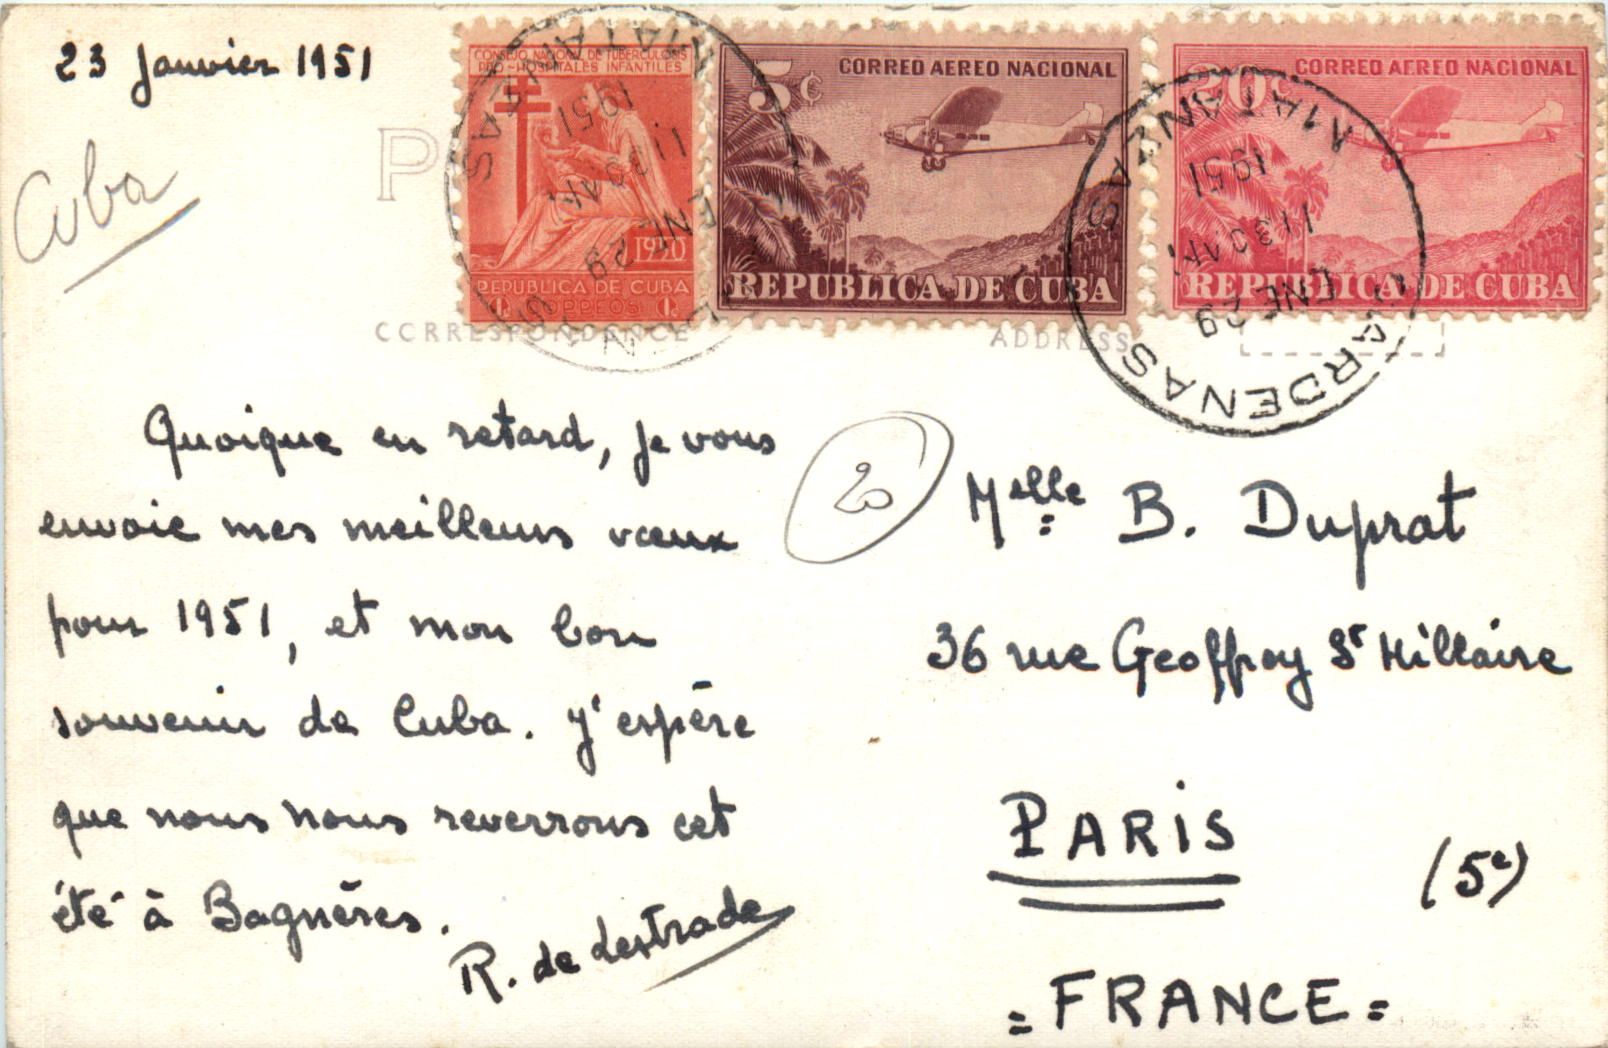 23 Janvier 1951
Cuba
CONSEJO NACIONAL DE TUBERCULOSIS
HOSPITALES INFANTILES
1950
REPUBLICA DE CUBA
CORREOS
5¢
CORREO AEREO NACIONAL
REPUBLICA DE CUBA
20
CORREO AEREO NACIONAL
REPUBLICA DE CUBA
CARDENAS
ENE 29
11 30 AM
1951
MATANZAS
CARDENAS
ENE 29
11 30 AM
1951
MATANZAS
CORRESPONDENCE
ADDRESS
Quoique en retard, je vous
envoie mes meilleurs vœux
pour 1951, et mon bon
souvenir de Cuba. J'espère
que nous nous reverrons cet
été à Bagnères.
R. de Lestrade
20
Melle B. Duprat
36 rue Geoffroy St Hillaire
PARIS
(5e)
= FRANCE =